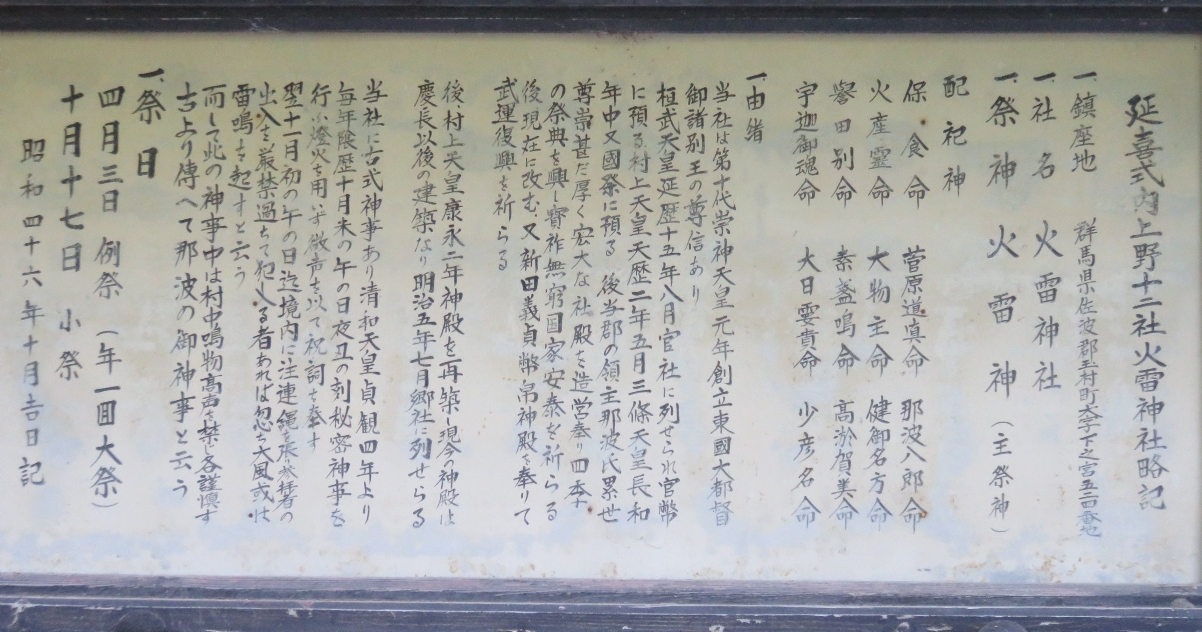 延喜式内上野十二社火雷神社略記
一、鎮座地　群馬県佐波郡玉村町大字下之宮五二四番地
一、社名　火雷神社
一、祭神　火雷神（主祭神）
配祀神
保食命　菅原道真命　那波八郎命
火産霊命　大物主命　健御名方命
誉田別命　素盞鳴命　高淤賀美命
宇迦御魂命　大日孁貴命　少彦名命
一、由緒
当社は第十代崇神天皇元年創立東國大都督
御諸別王の尊信あり
桓武天皇延歴十五年八月官社に列せられ官幣
に預る、村上天皇天歴二年五月三條天皇長和
年中又國祭に預る　後当郡の領主那波氏累世
尊崇甚だ厚く宏大な社殿を造営奉り四季
の祭典を興し寶祚無窮国家安泰を祈らる
後現在に改む、又新田義貞幣帛神殿を奉りて
武運復興を祈らる
後、村上天皇康永二年神殿を再築し現今の神殿は
慶長以後の建築なり明治五年七月郷社に列せらる
当社に古式神事あり清和天皇貞観四年より
毎年陰歴十月末の午の日夜丑の刻秘密神事を
行ふ燈火を用いず微声を以て祝詞を奉す
翌十一月初の午の日迄境内に注連縄を張り参拝者の
出入を厳禁過ちて犯し入る者あれば忽ち大風或は
雷鳴を起すと云う
而して此の神事中は村中鳴物高声を禁じ各謹慎す
古より傳へて那波の御神事と云う
一、祭日
四月三日　例祭　（年一回大祭）
十月十七日　小祭
昭和四十六年十月吉日記